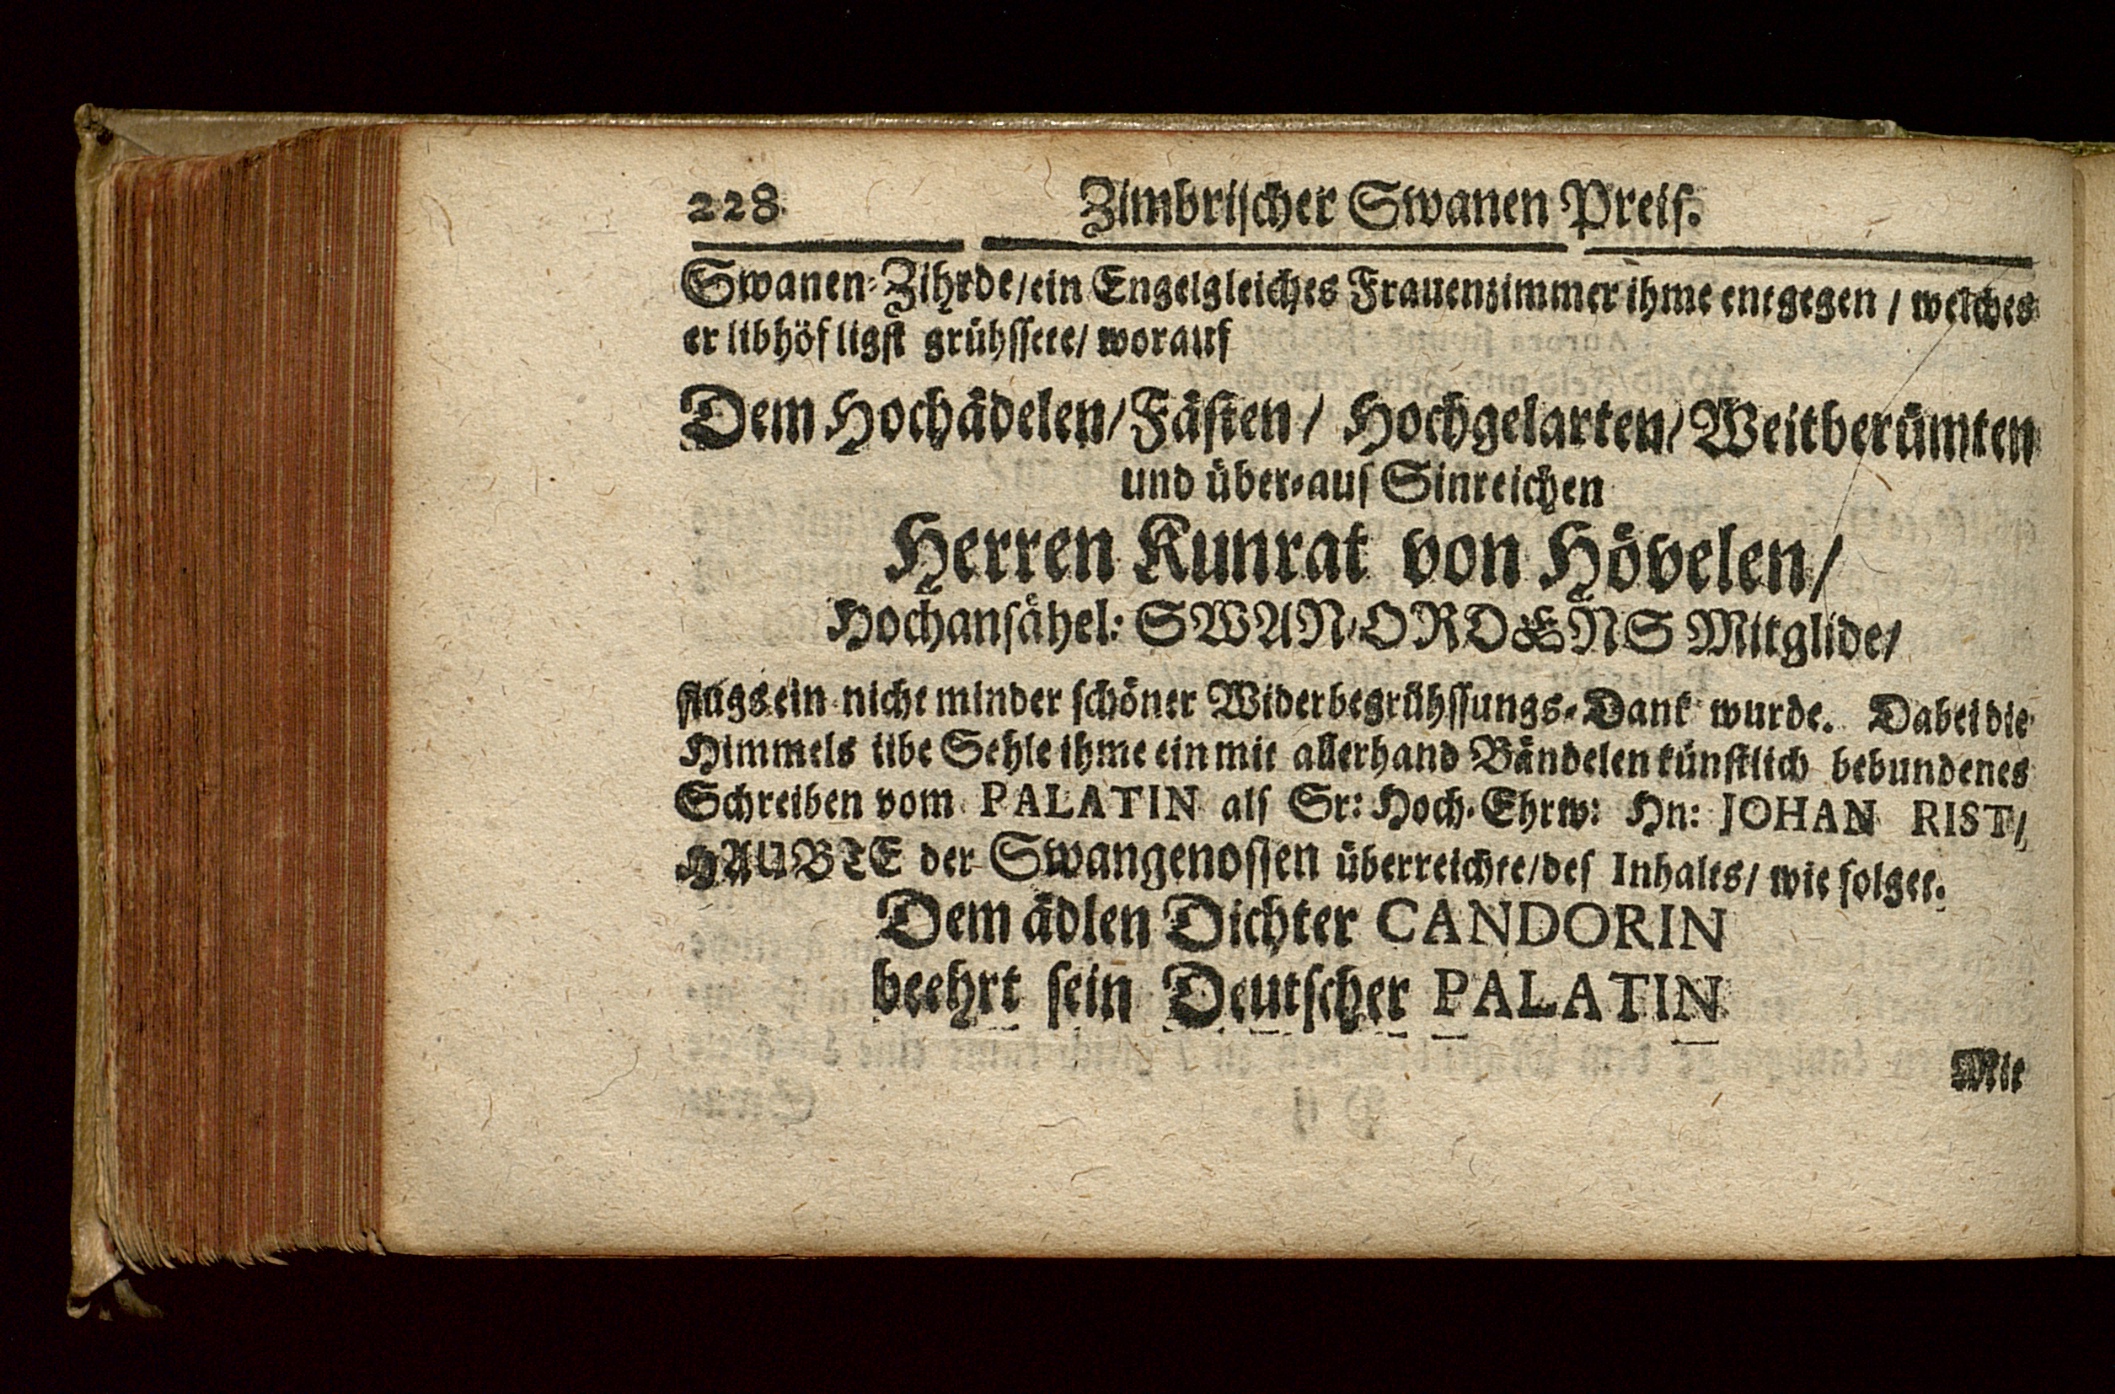 228 Zimbrischer Swanen Preis.
Swanen-Zihrde/ein Engelgleiches Frauenzimmer ihme entgegen / welches
er libhöfligst grühssete/ worauf
Dem Hochädelen/Fästen / Hochgelarten/Weitberümten
und über-aus Sinreichen
Herren Kunrat von Hövelen/
Hochansähel: SWAN-ORDENS Mitglide/
flugs ein nicht minder schöner Widerbegrühssungs-Dank wurde. Dabei die
Himmels libe Sehle ihme ein mit allerhand Bändelen künstlich bebundenes
Schreiben vom PALATIN als Sr: Hoch-Ehrw: Hn: JOHAN RIST/
HAUBTE der Swangenossen überreichte/des Inhalts/ wie folget.
Dem ädlen Dichter CANDORIN
beehrt sein Deutscher PALATIN
Mit